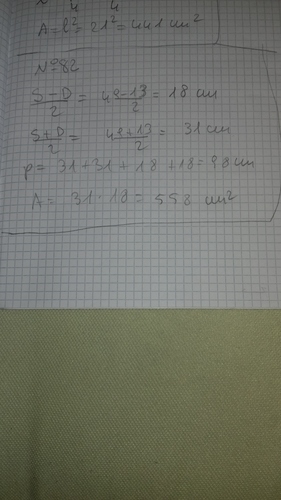 4 4
A = l² = 21² = 441 cm²
N°82
S-D/2 = 49-13/2 = 18 cm
S+D/2 = 49+13/2 = 31 cm
p = 31+31+18+18 = 98 cm
A = 31·18 = 558 cm²